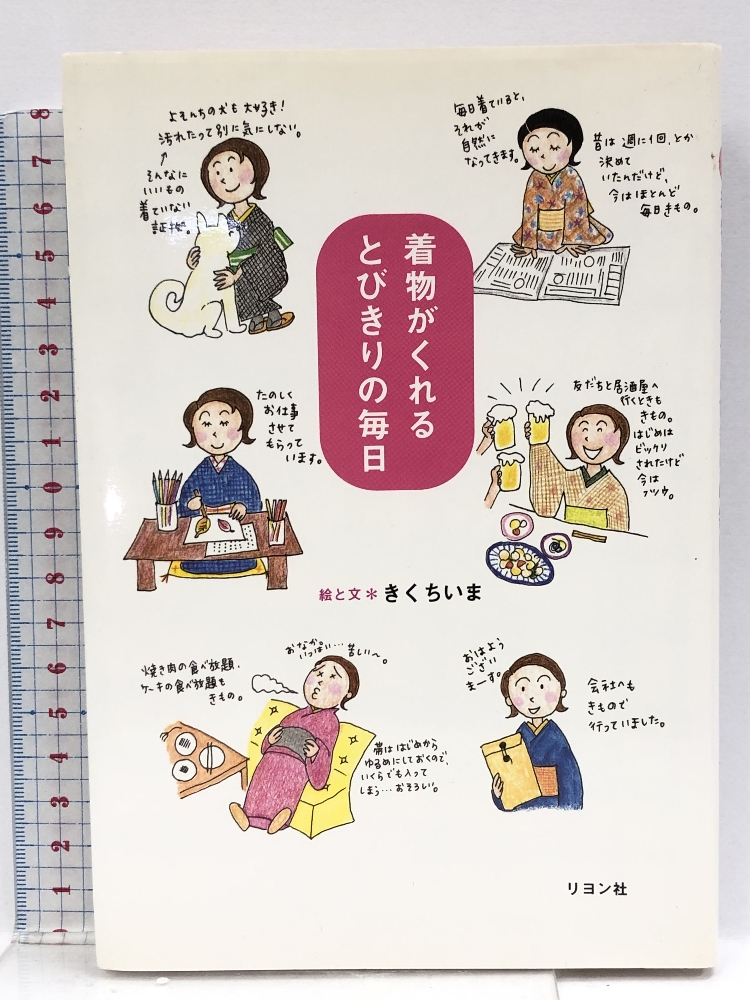 よそんちの犬も大好き!
汚れたって別に気にしない。
そんなに
いいもの
着ていない
証拠。
毎日着ていると、
それが
自然に
なってきます。
昔は週に1回、とか
決めて
いたんだけど、
今はほとんど
毎日きもの。
着物がくれる
とびきりの毎日
たのしく
お仕事
させて
もらって
います。
友だちと居酒屋へ
行くときも
きもの。
はじめは
ビックリ
されたけど
今は
フツウ。
絵と文＊きくちいま
焼き肉の食べ放題、
ケーキの食べ放題も
きもの。
おなか。
いっぱい…苦しい〜。
帯ははじめから
ゆるめにしておくので、
いくらでも入って
しまう…おそろし。
おはよう
ござい
まーす。
会社へも
きもので
行っていました。
リヨン社
8
7
6
5
4
3
2
1
0
9
8
7
6
5
4
3
2
1